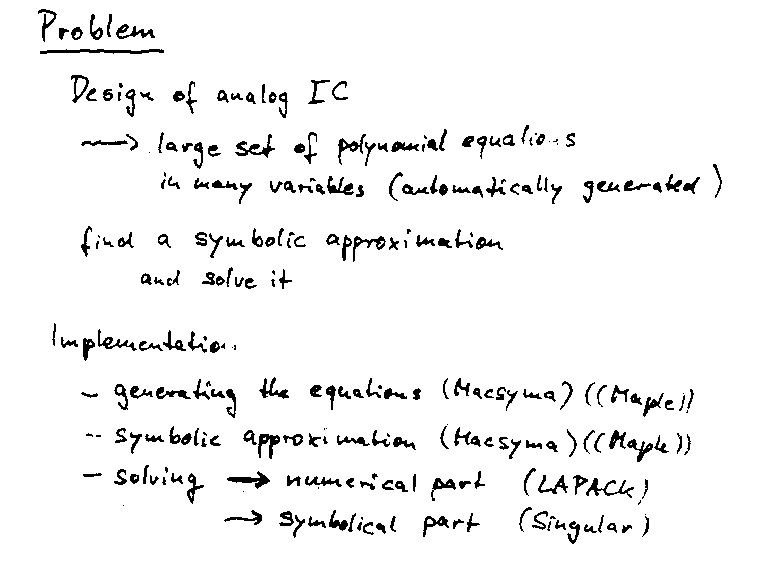 Problem
Design of analog IC
⟶ large set of polynomial equations
in many variables (automatically generated)
find a symbolic approximation
and solve it
Implementation.
- generating the equations (Macsyma) ((Maple))
-- symbolic approximation (Macsyma) ((Maple))
- solving → numerical part (LAPACK)
→ symbolical part (Singular)